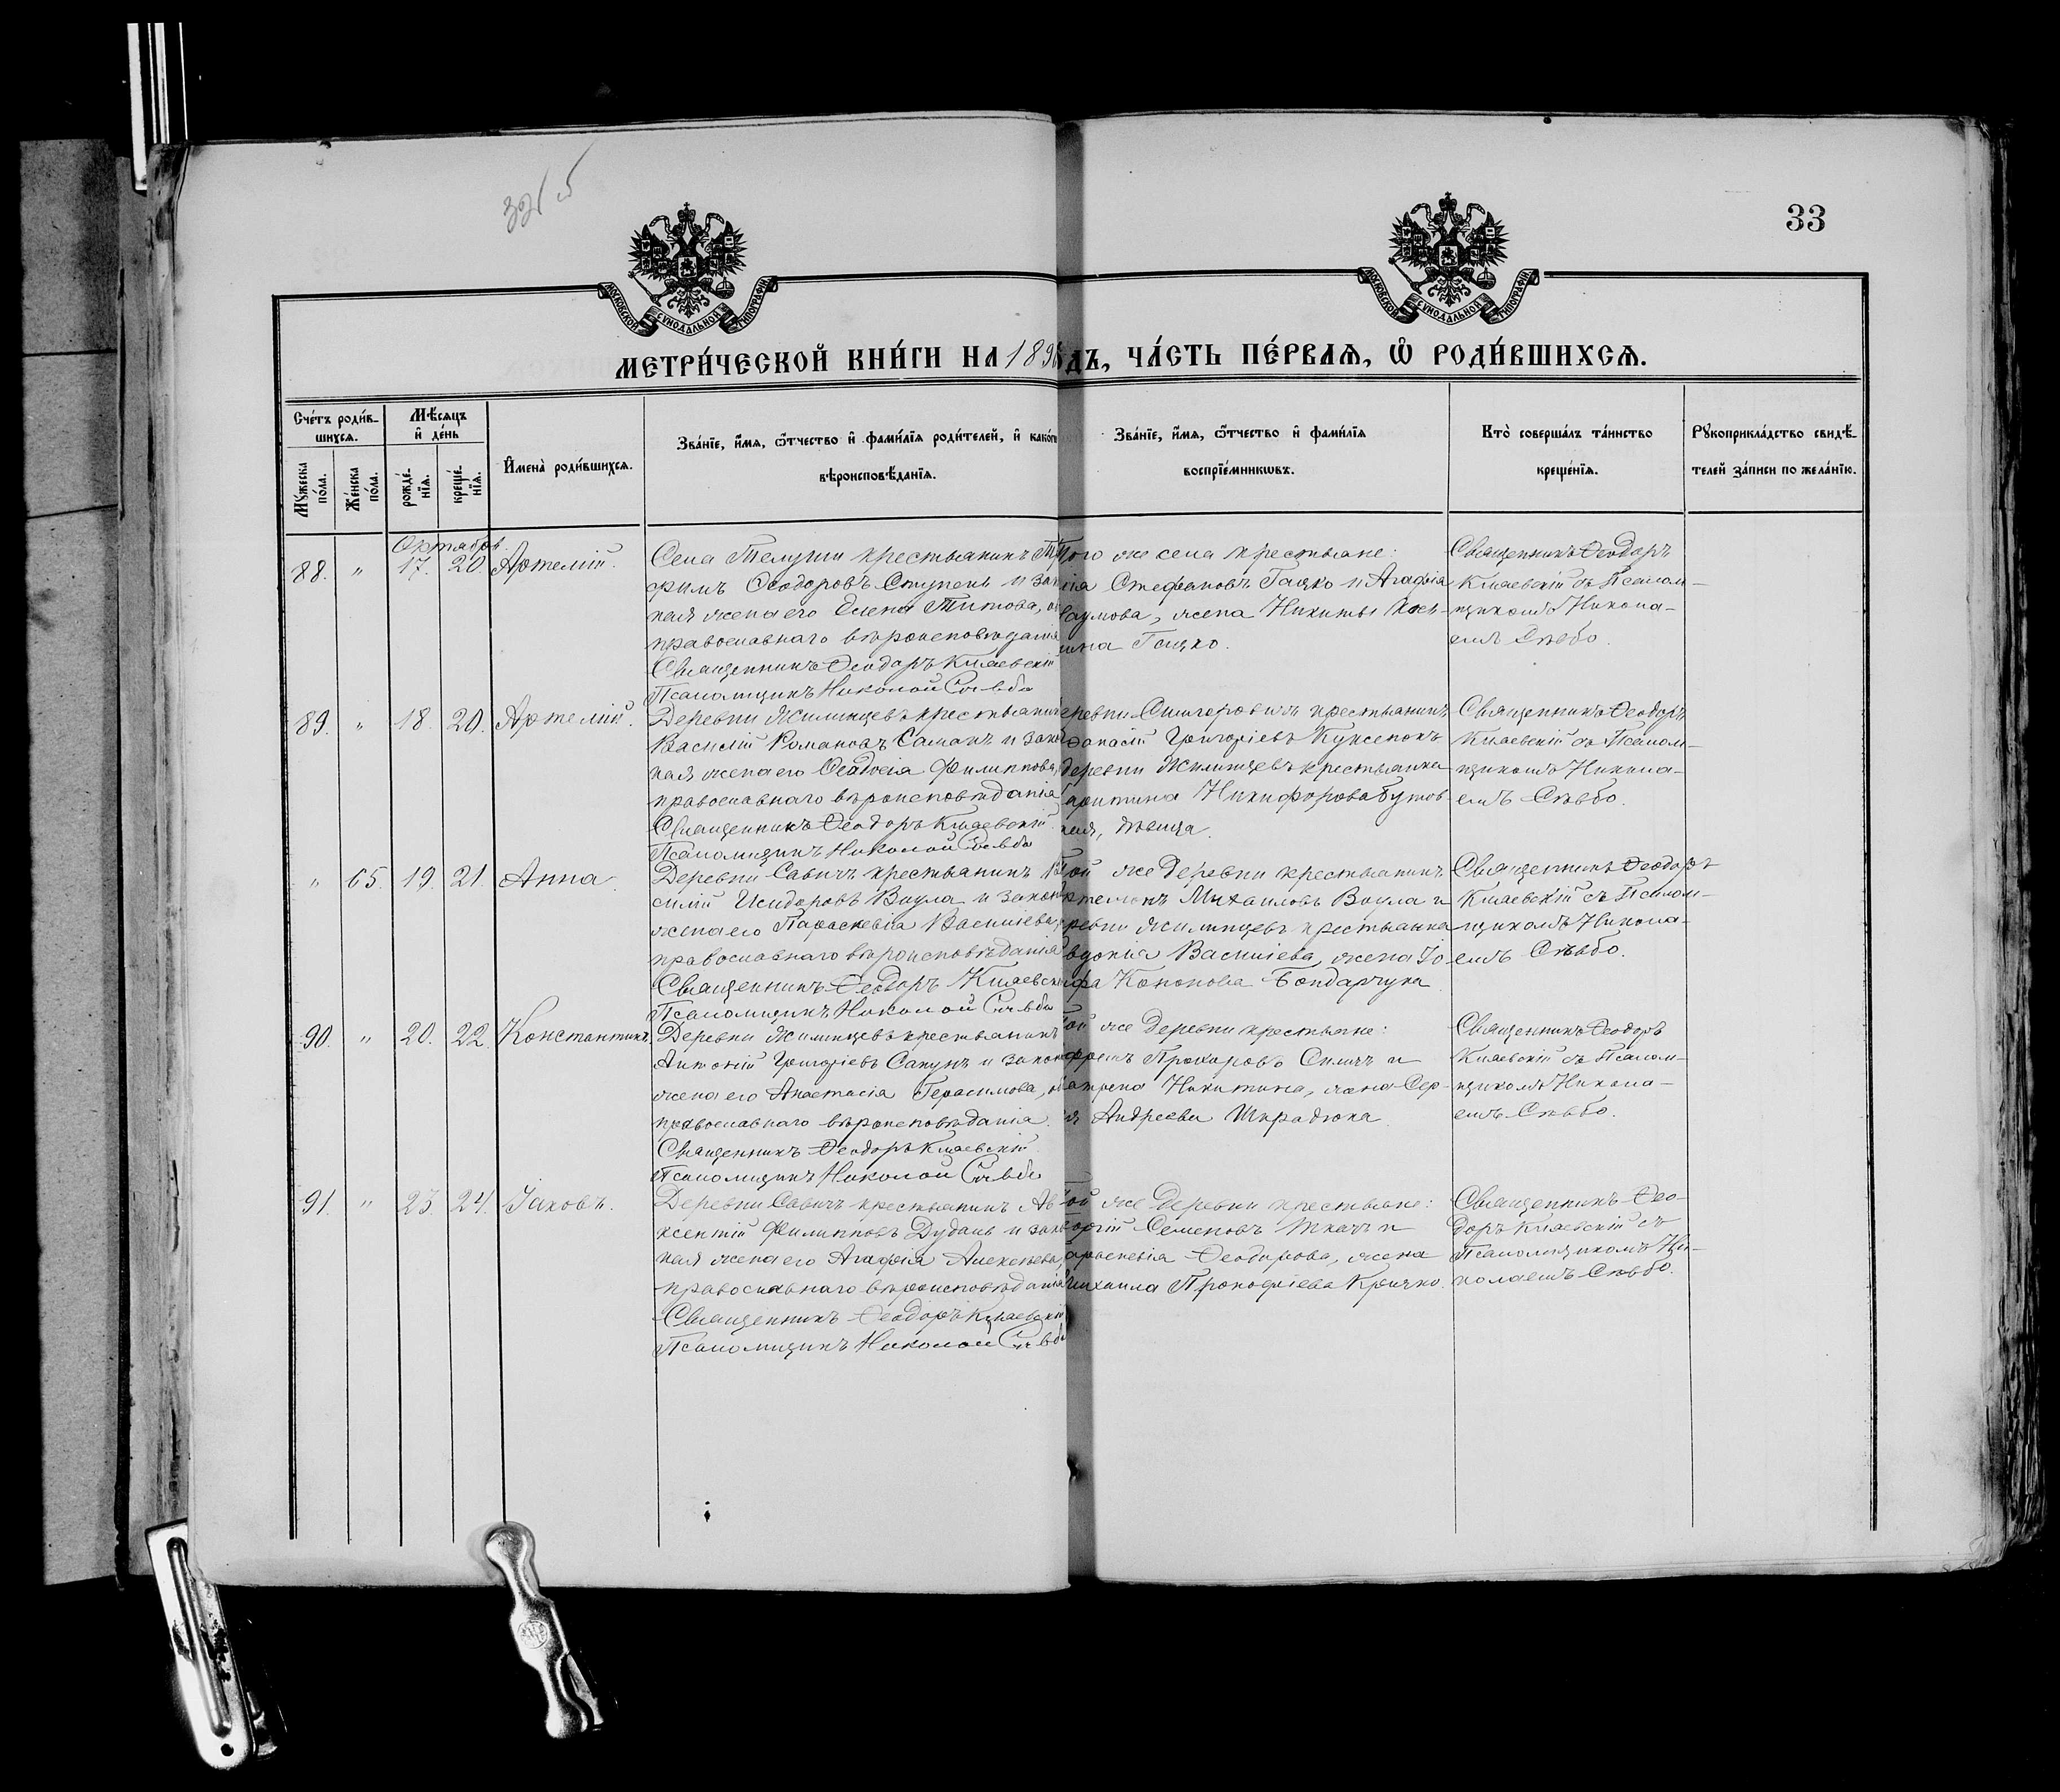 33
МОСКОВСКОЙ СѴНОДАЛЬНОЙ ТИПОГРАФІИ
МОСКОВСКОЙ СѴНОДАЛЬНОЙ ТИПОГРАФІИ
МЕТРИ́ЧЕСКОЙ КНИ́ГИ НА 189 ДЪ, ЧА́СТЬ ПЕ́РВАѦ, Ѡ҆ РОДИ́ВШИХСѦ.
Сче́тъ роди́в-
шихсѧ.
Мѣ́сѧцъ
и҆ де́нь
Мꙋ́жеска
по́ла.
Же́нска
по́ла.
рожде́-
нїѧ.
креще́-
нїѧ.
И҆мена̀ роди́вшихсѧ.
Зва́нїе, и҆́мѧ, ѻ҆́тчество и҆ фами́лїѧ роди́телей, и҆ како́г
вѣроисповѣ́данїѧ.
Зва́нїе, и҆́мѧ, ѻ҆́тчество и҆ фами́лїѧ
воспрїе́мникѡвъ.
Кто̀ соверша́лъ та́инство
креще́нїѧ.
Рꙋкоприкла́дство свидѣ́-
телей за́писи по жела́нїю.
Октябрь
88. " 17. 20. Артемій.
Села Телуши крестьянинъ Тр
фимъ Ѳеодоровъ Ступень и зак
ная жена его Елена Титова, о
православнаго вѣроисповѣданія
Священникъ Ѳеодоръ Княевскій
Псаломщикъ Николай Стѣбо
Того же села крестьяне:
Стефановъ Гацко и Агафія
аумова, жена Никиты
ина Гацко.
Священникъ Ѳеодоръ
Княевскій съ Псалом-
щикомъ Никола-
емъ Стѣбо.
89. " 18. 20. Артемій.
Деревни Жилинцевъ крестьянин
Василій Романовъ Саманъ и зако
ная жена его Ѳеодосія Филиппова,
православнаго вѣроисповѣданія
Священникъ Ѳеодоръ Княевскій
Псаломщикъ Николай Стѣбо
еревни крестьянинъ
анасій Григоріевъ Куксенокъ
деревни Жилинцевъ крестьянка
аритина Никифорова
ная, дѣвица.
Священникъ Ѳеодоръ
Княевскій съ Псалом-
щикомъ Никола-
емъ Стѣбо.
" 65. 19. 21. Анна
Деревни Савичъ крестьянинъ Ва
силій Исидоровъ Ваула и закон
жена его Параскевія Васильева,
православнаго вѣроисповѣданія
Священникъ Ѳеодоръ Княевскі
Псаломщикъ Николай Стѣбо
той же деревни крестьянинъ
Михаиловъ Ваула и
ревни Жилинцевъ крестьянка
вдокія Васильева, жена Іо
ифа Кононова Бондарчука
Священникъ Ѳеодоръ
Княевскій съ Псалом-
щикомъ Никола-
емъ Стѣбо.
90. " 20. 22. Константинъ.
Деревни Жилинцевъ крестьянинъ
Антоній Григоріевъ Сапунъ и закон
жена его Анастасія Герасимова, о
православнаго вѣроисповѣданія.
Священникъ Ѳеодоръ Княевскій
Псаломщикъ Николай Стѣбо
той же деревни крестьяне:
Прохоровъ и
атрена Никитина, жена Сер-
я Андреева Шкрадюка
Священникъ Ѳеодоръ
Княевскій съ Псалом-
щикомъ Никола-
емъ Стѣбо.
91. " 23. 24. Іаковъ.
Деревни Савичъ крестьянинъ Ав
ксентій Филипповъ Дудань и зак
ная жена его Агафія Алексѣева,
православнаго вѣроисповѣданія
Священникъ Ѳеодоръ Княевскій
Псаломщикъ Николай Стѣбо
той же деревни крестьяне:
оргій Семеновъ Ткачъ и
араскевія Ѳеодорова, жена
ихаила Прокофіева Кричко.
Священникъ Ѳео-
доръ Княевскій съ
Псаломщикомъ Ни-
колаемъ Стѣбо.